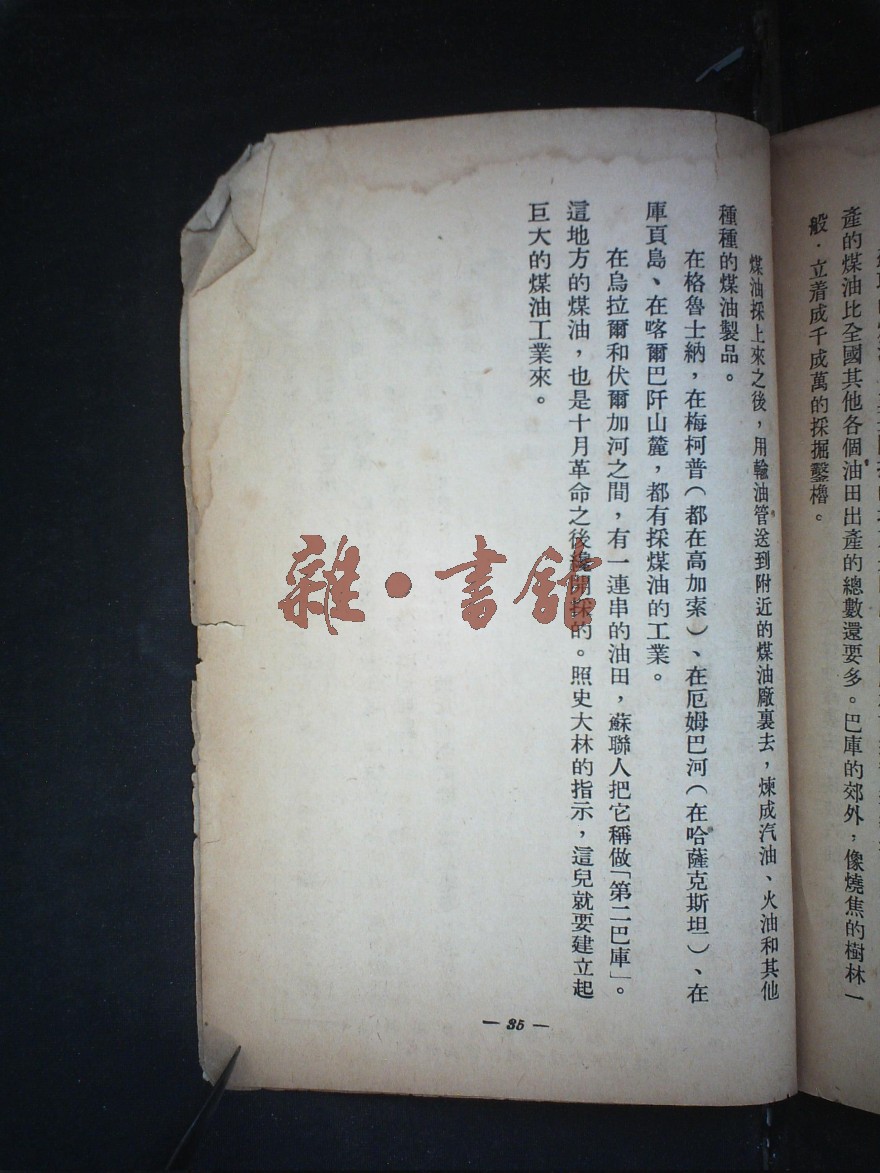 產的煤油比全國其他各個油田出產的總數還要多。巴庫的郊外，像燒焦的樹林一
般．立着成千成萬的採掘鑿櫓。
煤油採上來之後，用輸油管送到附近的煤油廠裏去，煉成汽油、火油和其他
種種的煤油製品。
在格魯士納，在梅柯普（都在高加索）、在厄姆巴河（在哈薩克斯坦）、在
庫頁島、在喀爾巴阡山麓，都有採煤油的工業。
在烏拉爾和伏爾加河之間，有一連串的油田，蘇聯人把它稱做「第二巴庫」。
這地方的煤油，也是十月革命之後纔開採的。照史大林的指示，這兒就要建立起
巨大的煤油工業來。
— 35 —
雜・書館